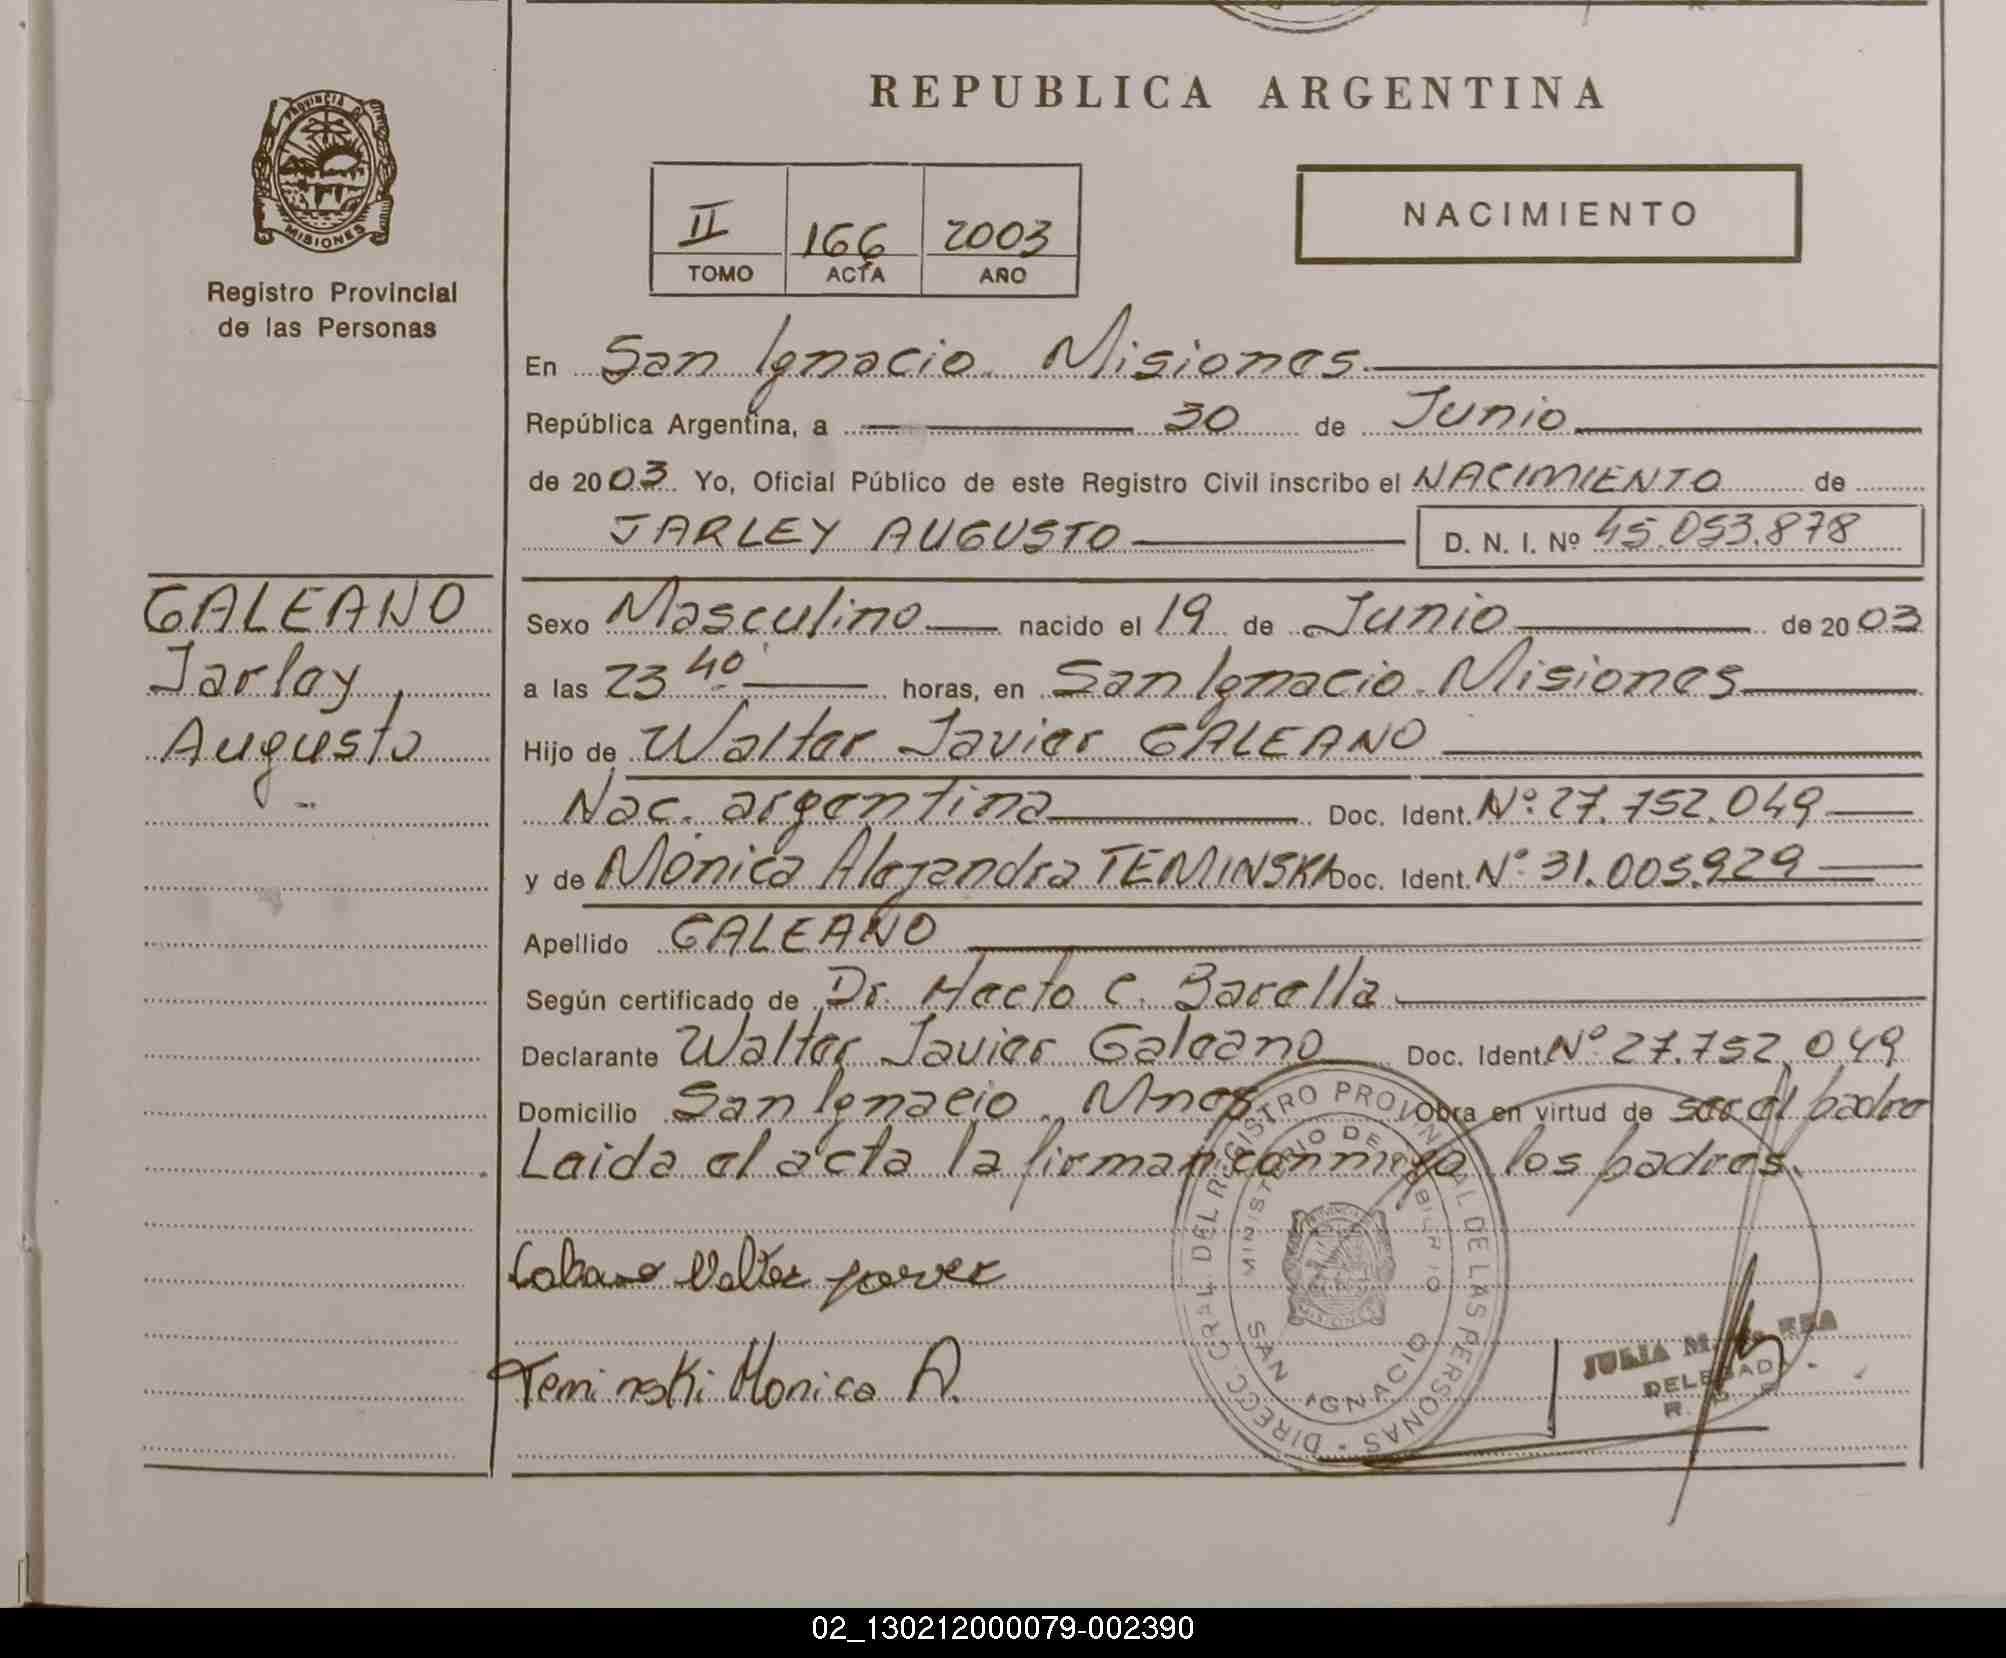 REPUBLICA ARGENTINA
PROVINCIA DE
MISIONES
Registro Provincial
de las Personas
II 166 2003
TOMO ACTA AÑO
NACIMIENTO
En San Ignacio Misiones
República Argentina, a 30 de Junio
de 2003 Yo, Oficial Público de este Registro Civil inscribo el NACIMIENTO de
JARLEY AUGUSTO D. N. I. Nº 45.053.878
GALEANO
Jarley
Augusto
Sexo Masculino nacido el 19 de Junio de 2003
a las 23 40' horas, en San Ignacio Misiones
Hijo de Walter Javier GALEANO
Nac. argentina Doc. Ident. Nº: 27.752.049
y de Mónica Alejandra TEMINSKI Doc. Ident. Nº: 31.005.929
Apellido GALEANO
Según certificado de Dr. Hecto C. Barella
Declarante Walter Javier Galeano Doc. Ident. Nº 27.752.049
Domicilio San Ignacio Mnes Obra en virtud de ser el padre
Leida el acta la firman conmigo los padres.
DIRECC. GRAL. DEL REGISTRO PROVINCIAL DE LAS PERSONAS
MINISTERIO DE
SAN IGNACIO
Walter
Teminski Monica A.
JULIA M.
DELEGADA
R.
02_130212000079-002390